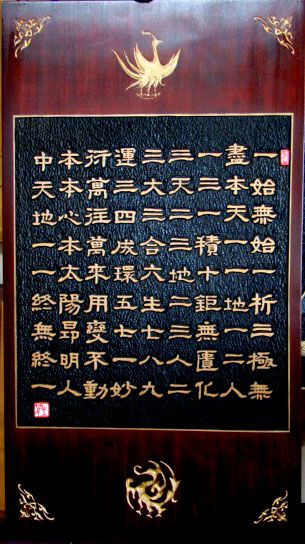 一始無始一析三極無
盡本天一一地一二人
一三一積十鉅無匱化
三天二三地二三人二
三大三合六生七八九
運三四成環五七一妙
衍萬往萬來用變不動
本本心本太陽昻明人
中天地一一終無終一